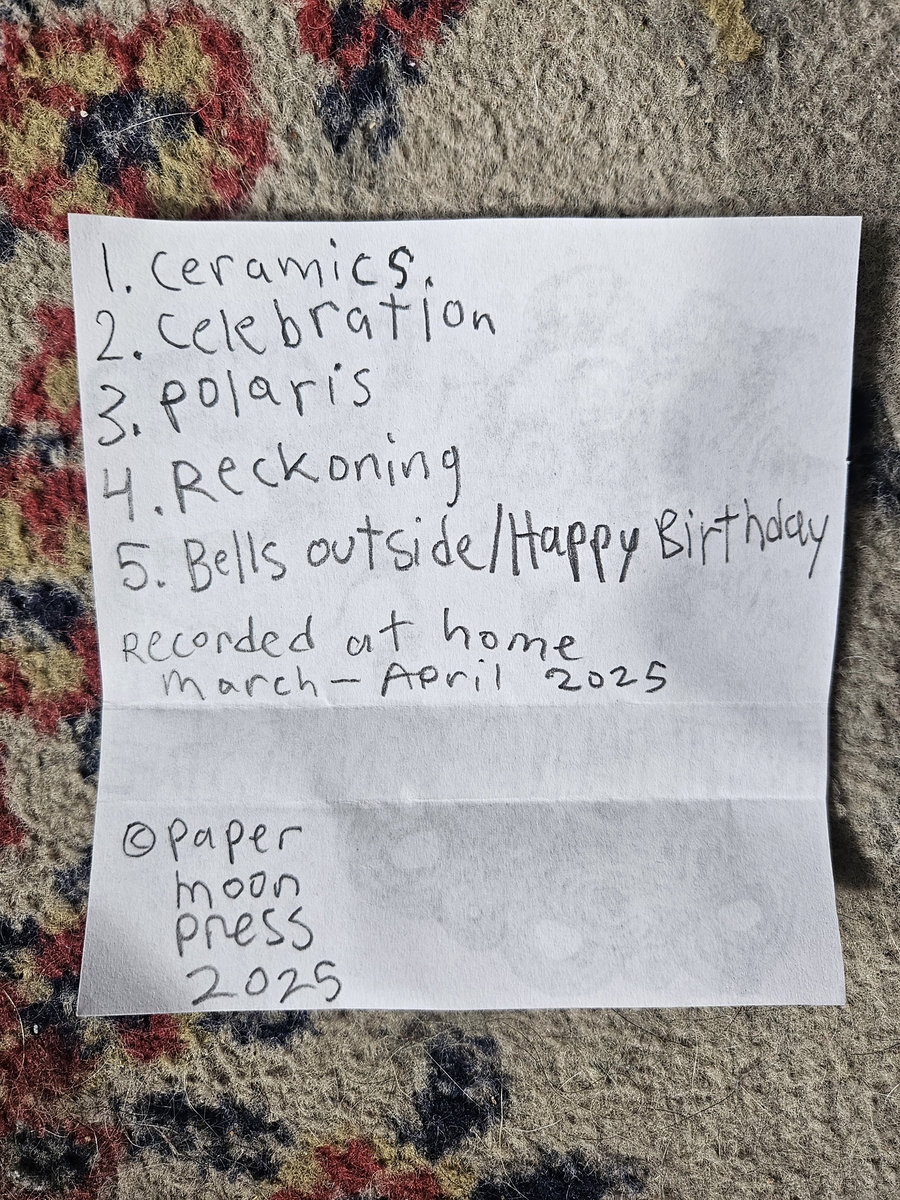 1. Ceramics.
2. Celebration
3. polaris
4. Reckoning
5. Bells outside/Happy Birthday
Recorded at home
March - April 2025
© Paper
moon
press
2025